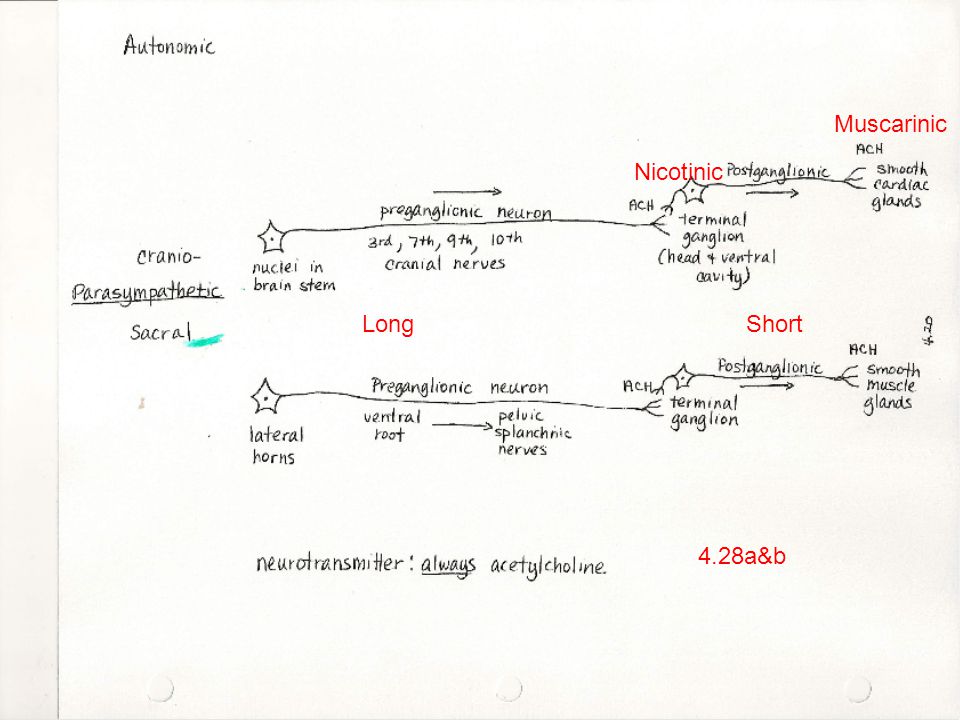 Autonomic
Muscarinic
ACH
Nicotinic
Postganglionic
smooth
cardiac
glands
ACH
preganglionic neuron
terminal
ganglion
(head & ventral
cavity)
3rd, 7th, 9th, 10th
cranial nerves
nuclei in
brain stem
Cranio-
Parasympathetic
Sacral
Long
Short
4.20
ACH
Postganglionic
smooth
muscle
glands
Preganglionic neuron
ACH
terminal
ganglion
ventral
root
pelvic
splanchnic
nerves
lateral
horns
neurotransmitter: always acetylcholine.
4.28a&b